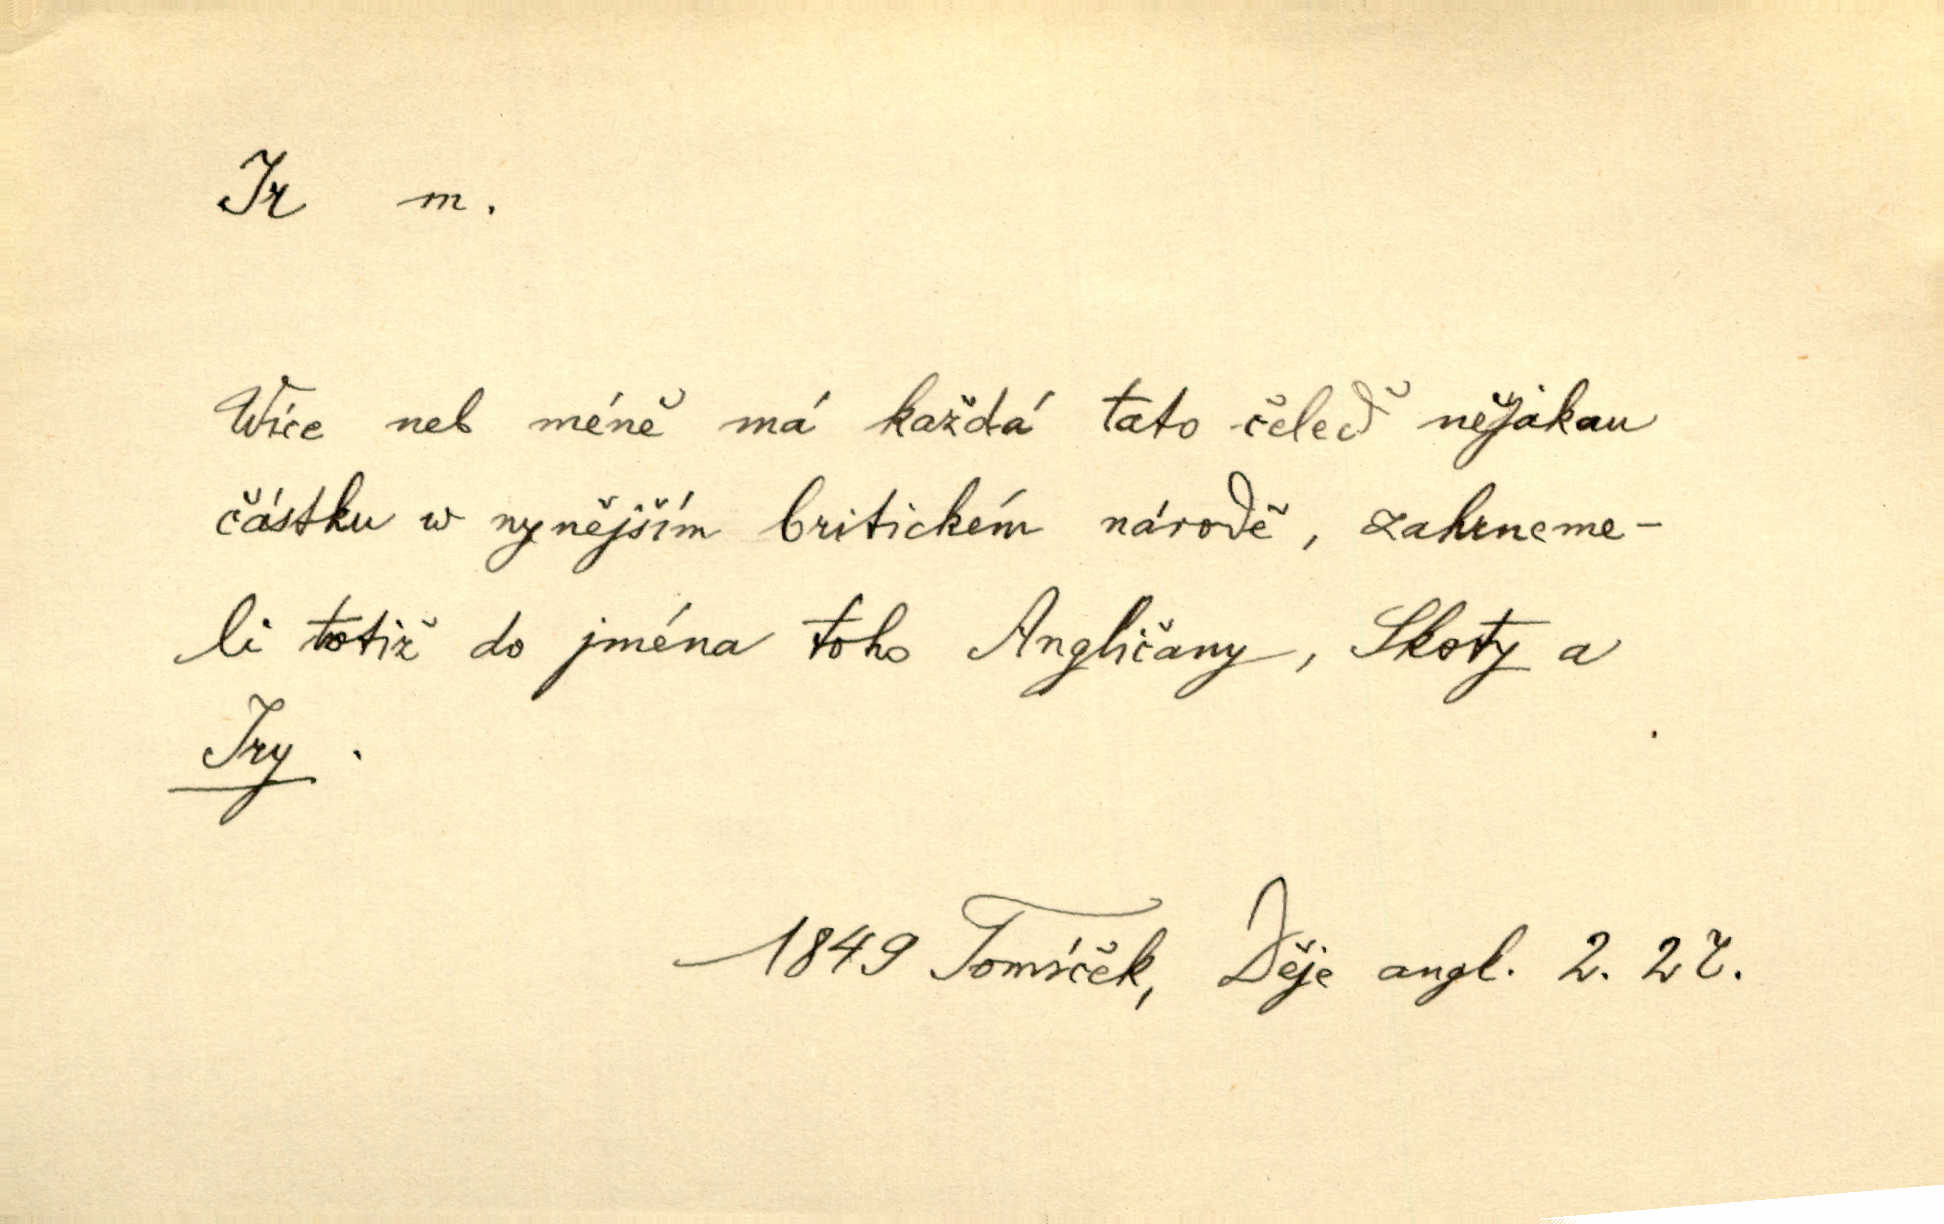 Ir m.
Wíce neb méně má každá tato čeleď nějakau
částku w nynějším britickém národě, zahrneme-
li totiž do jména toho Angličany, Skoty a
Iry.
1849 Tomíček, Děje angl. 2. 27.